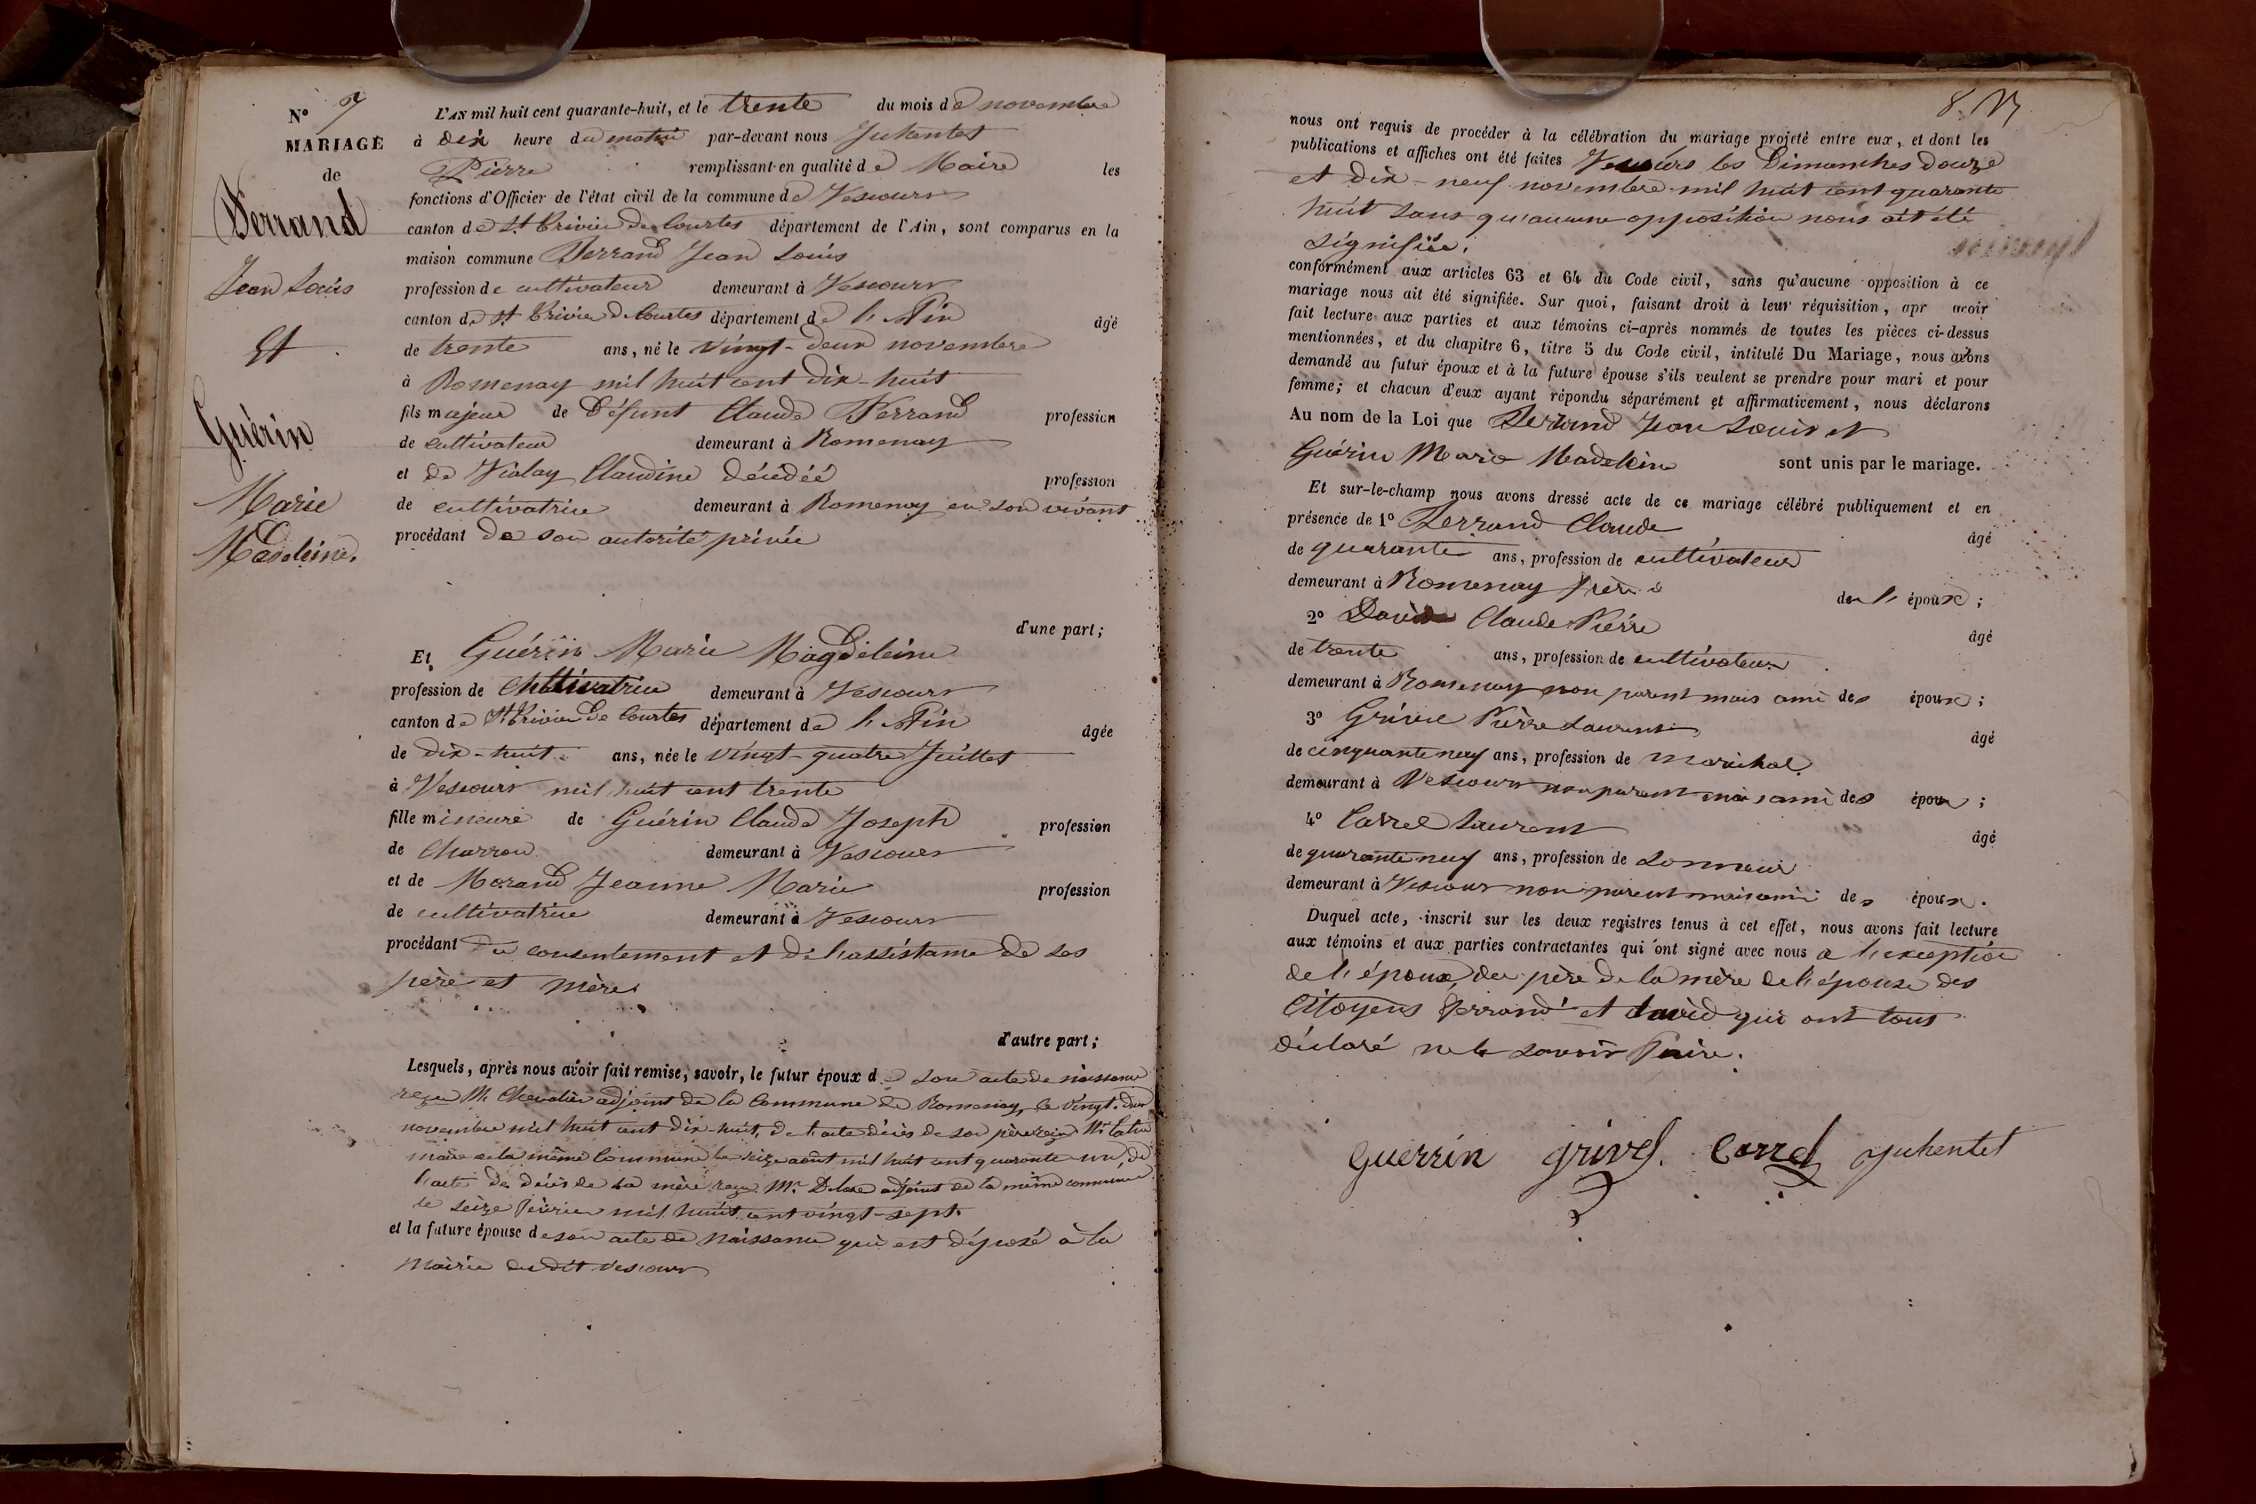 N° 7
MARIAGE
de
Ferrand
Jean Louis
Et
Guérin
Marie
Madeleine.
L'AN mil huit cent quarante-huit, et le trente du mois de novembre
à dix heure du matin par-devant nous Juhentet
Pierre remplissant en qualité de Maire les
fonctions d'Officier de l'état civil de la commune de Vescours
canton de St Trivier de Courtes département de l'Ain, sont comparus en la
maison commune Ferrand Jean Louis
profession de cultivateur demeurant à Vescours
canton de St Trivier de Courtes département de l'Ain âgé
de trente ans, né le vingt-deux novembre
à Romenay mil huit cent dix-huit
fils majeur de défunt Claude Ferrand profession
de cultivateur demeurant à Romenay
et de Vialay Claudine décédéé profession
de cultivatrice demeurant à Romenay en son vivant
procédant de son autorité privée
d'une part;
Et Guérin Marie Magdeleine
profession de cultivatrice demeurant à Vescours
canton de St Trivier de Courtes département de l'Ain âgée
de dix-huit ans, née le vingt-quatre Juillet
à Vescours mil huit cent trente
fille mineure de Guérin Claude Joseph profession
de Charron demeurant à Vescours
et de Morand Jeanne Marie profession
de cultivatrice demeurant à Vescours
procédant du consentement et de l'assistance de ses
père et mère
d'autre part;
Lesquels, après nous avoir fait remise, savoir, le futur époux de son acte de naissance
reçu Mr Chevalier adjoint de la Commune de Romenay, le vingt-deux
novembre mil huit cent dix-huit, de l'acte décès de son père reçu Mr
maire de la même Commune le seize août mil huit cent quarante un, de
l'acte de décès de sa mère reçu Mr adjoint de la même commune
le seize février mil huit cent vingt-sept.
et la future épouse de son acte de naissance qui est déposé à la
Mairie du dit Vescours
8.
nous ont requis de procéder à la célébration du mariage projeté entre eux, et dont les
publications et affiches ont été faites Vescours les Dimanches douze
et dix-neuf novembre mil huit cent quarante
huit sans qu'aucune opposition nous ait été
signifiée.
conformément aux articles 63 et 64 du Code civil, sans qu'aucune opposition à ce
mariage nous ait été signifiée. Sur quoi, faisant droit à leur réquisition, apr avoir
fait lecture aux parties et aux témoins ci-après nommés de toutes les pièces ci-dessus
mentionnées, et du chapitre 6, titre 5 du Code civil, intitulé Du Mariage, nous avons
demandé au futur époux et à la future épouse s'ils veulent se prendre pour mari et pour
femme; et chacun d'eux ayant répondu séparément et affirmativement, nous déclarons
Au nom de la Loi que Ferrand Jean Louis et
Guérin Marie Madeleine sont unis par le mariage.
Et sur-le-champ nous avons dressé acte de ce mariage célébré publiquement et en
présence de 1° Ferrand Claude âgé
de quarante ans, profession de cultivateur
demeurant à Romenay frère de l'époux;
2° David Claude Pierre âgé
de trente ans, profession de cultivateur
demeurant à Romenay non parent mais ami des époux;
3° Grivel Pierre Laurent âgé
de cinquante neuf ans, profession de maréchal
demeurant à Vescours non parent mais ami des époux;
4° Carrel Laurent âgé
de quarante neuf ans, profession de sonneur
demeurant à Vescours non parent mais ami des époux.
Duquel acte, inscrit sur les deux registres tenus à cet effet, nous avons fait lecture
aux témoins et aux parties contractantes qui ont signé avec nous a l'exception
de l'époux, du père de la mère de l'épouse des
Citoyens Ferrand et david qui ont tous
déclaré ne le savoir faire.
Guerrin grivel. Carrel Juhentet